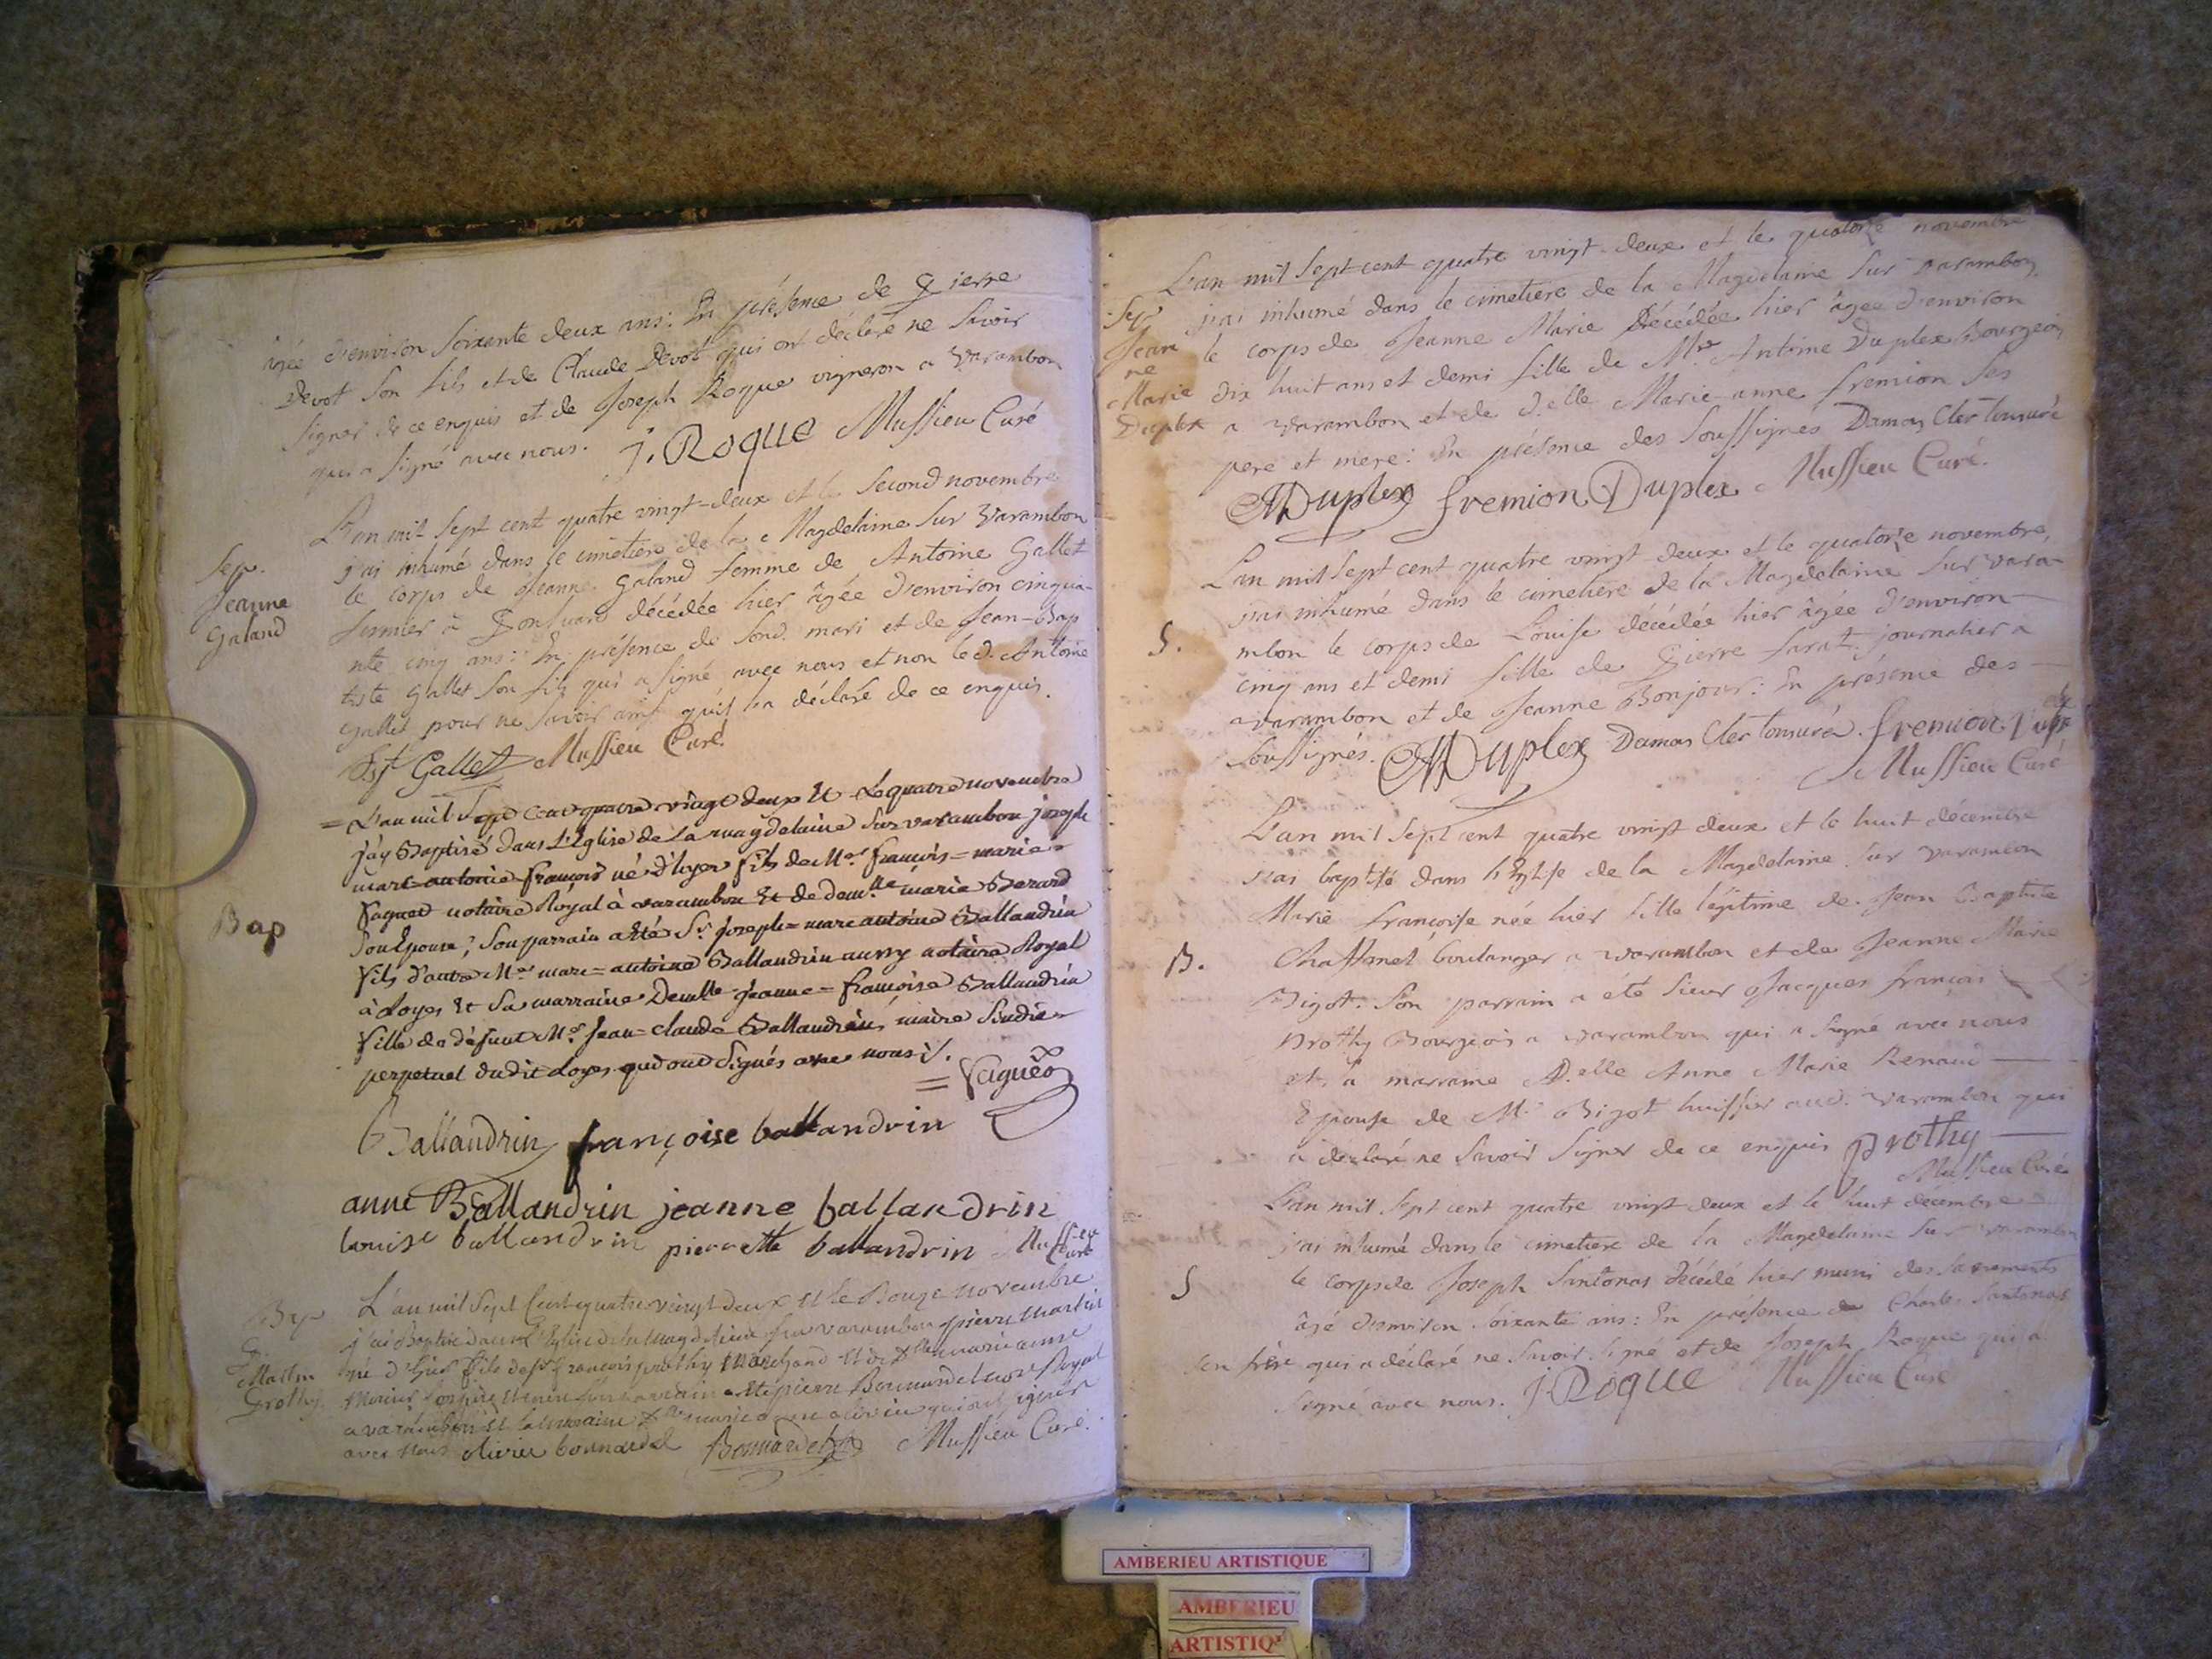 âgée d'environ soixante deux ans: En présence de Pierre
Devot son fils et de Claude Devot qui ont déclaré ne savoir
signer de ce enquis et de Joseph Roque vigneron a Varambon
qui a signé avec nous. J. Roque Mussieu Curé
Sep.
Jeanne
Galand
L'an mil sept cent quatre vingt-deux et le second novembre
j'ai inhumé dans le cimetiere de la Magdelaine sur Varambon
le corps de Jeanne Galand femme de Antoine Gallet
fermier à décédée hier âgée d'environ cinqua-
nte cinq ans: En présence de sond. mari et de Jean-Bap
tiste Gallet son fils qui a signé avec nous et non led. Antoine
Gallet pour ne savoir ainsi qu'il l'a déclaré de ce enquis.
Bpt Gallet Mussieu Curé.
Bap
= L'an mil Sept Cent quatre vingt deux Et Le quatre novembre
j'ay Baptisé dans L'Eglise de La magdelaine Sur varambon joseph
marc-antoine-françois né d'hyer fils de Mre françois=marie
faguet notaire Royal à varambon Et de demlle marie Berard
Son Epouse; Son parrain a Eté Sr joseph=marc antoine Ballandrin
fils d'autre Mre marc=antoine Ballandrin aussy notaire Royal
à Loyes Et Sa marraine Demlle jeanne=françoise Ballandrin
fille de défunt Mre jean=claude Ballandrin, maire Sindic
perpetuel dudit Loyes qui ont Signés avec nous ./.
= faguet
Ballandrin françoise ballandrin
anne Ballandrin jeanne ballandrin
louise ballandrin pierrette ballandrin Mussieu Curé
Bap
Martin
Prothy
L'an mil Sept Cent quatre vingt deux et le Douze novembre
j'ai Baptisé dans l'Eglise de la magdeleine sur varambon pierre martin
né d'hier fils de sr françois prothy Marchand et de Dlle marie anne
a varambon et la marraine Dlle marie olivier qui ont signés
avec nous olivier bonnardel Bonnardel Mussieu Curé.
Sep
Jean
ne
Marie
Duplex
L'an mil sept cent quatre vingt-deux et le quatorze novembre
j'ai inhumé dans le cimetiere de la Magdelaine sur varambon
le corps de Jeanne Marie décédée hier âgée d'environ
dix huit ans et demi fille de Mre Antoine Duplex Bourgeois
a varambon et de d.elle Marie-anne fremion ses
pere et mere: En présence des soussignés Damas Cler tonsuré
Duplex fremion Duplex Mussieu Curé.
S.
L'an mil sept cent quatre vingt deux et le quatorze novembre,
j'ai inhumé dans le cimetiere de la Magdelaine sur vara-
mbon le corps de Louise décédée hier âgée d'environ
cinq ans et demi fille de Pierre farat journalier a
varambon et de Jeanne Bonjour: En présence des
soussignés. Duplex Damas Cler tonsuré. fremion Duplex
Mussieu Curé
B.
L'an mil sept cent quatre vingt deux et le huit décembre
j'ai baptisé dans l'Eglise de la Magdelaine sur varambon
Marie françoise née hier fille légitime de Jean Baptiste
Chassinet boulanger a varambon et de Jeanne Marie
Bigot. Son parrain a été sieur Jacques françois
Prothy Bourgeois a varambon qui a signé avec nous
et la marraine D.elle Anne Marie Renaud
Epouse de Mr Bigot huissier aud. varambon qui
a déclaré ne savoir signer de ce enquis Prothy
Mussieu Curé
S
L'an mil sept cent quatre vingt deux et le huit décembre
j'ai inhumé dans le cimetiere de la Magdelaine sur varambon
le corps de Joseph Santonas décédé hier muni des sacrements
âgé d'environ soixante ans: En présence de Charles Santonas
son frère qui a déclaré ne savoir signé et de Joseph Roque qui a
signé avec nous. J. Roque Mussieu Curé
AMBERIEU ARTISTIQUE
AMBERIEU
ARTISTIQ